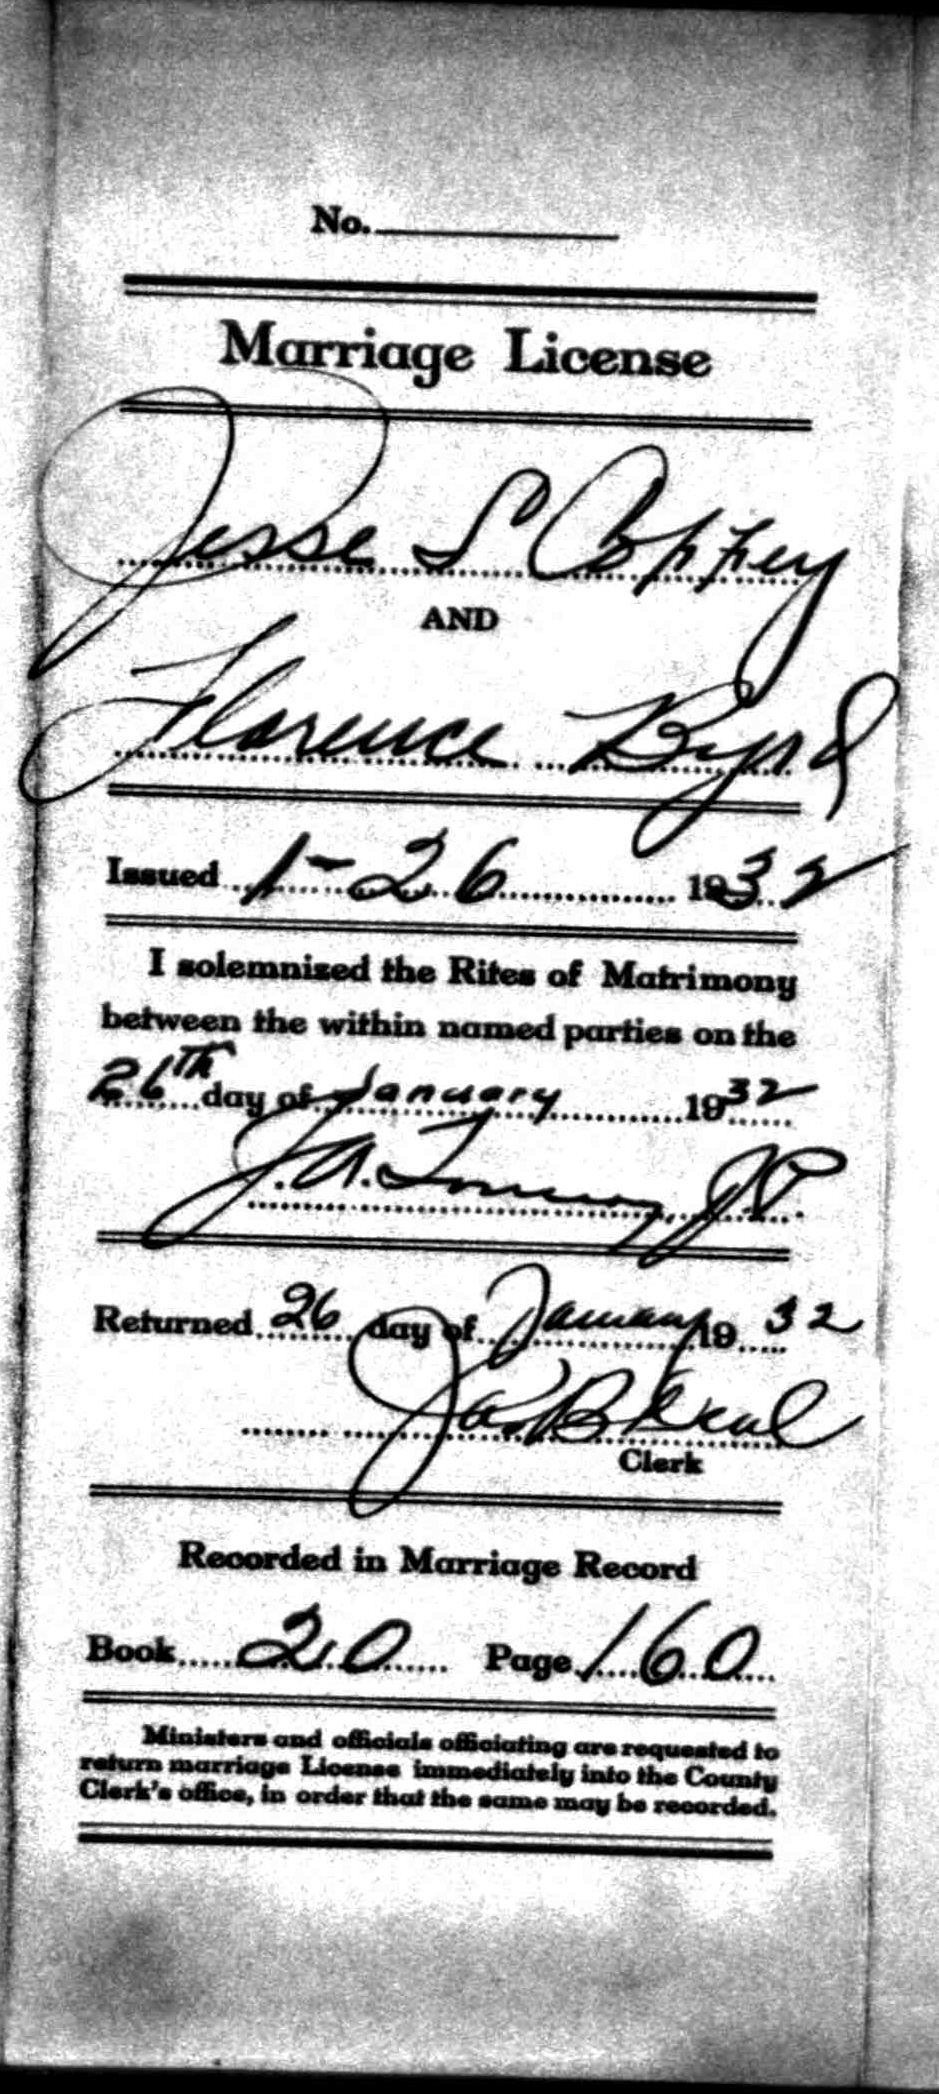 No.
Marriage License
Jesse S Coffey
AND
Florence Byrd
Issued 1-26 1932
I solemnized the Rites of Matrimony
between the within named parties on the
26th day of January 1932
J.A. J.P.
Returned 26 day of January 1932
Jas B
Clerk
Recorded in Marriage Record
Book 20 Page 160
Ministers and officials officiating are requested to
return marriage License immediately into the County
Clerk's office, in order that the same may be recorded.